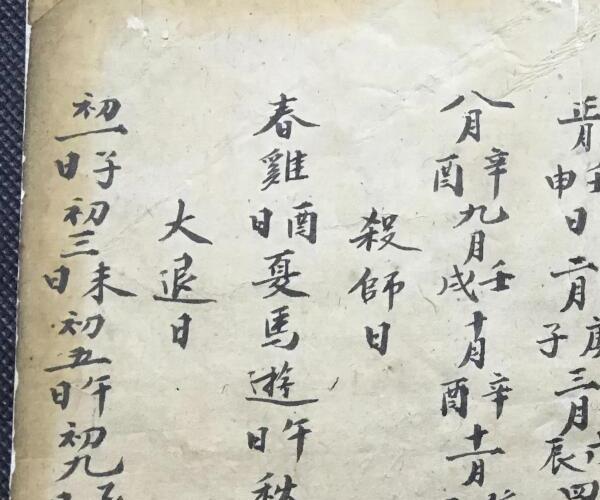 正月壬申日二月庚子三月
八月辛酉九月壬戌十月辛酉十一月
殺師日
春雞酉日夏馬遊午日
大退日
初一子日初三未日初五午日初九